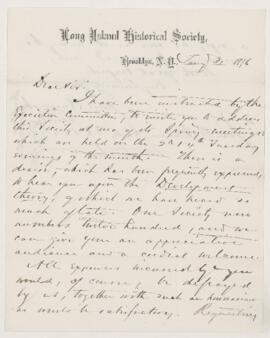 Long Island Historical Society,
Brooklyn, N.Y. Jany 31 1876
Dear Sir,
I have been instructed by the
Executive Committee, to invite you to address
this Society at one of its Spring meetings
which are held on the 2d & 4th Tuesday
evenings of the month. There is a
desire, which has been frequently expressed,
to hear you upon the Development
theory, of which we have heard so
much of late. Our Society now
numbers twelve hundred, and we
can give you an appreciative
audience and a cordial welcome.
All expenses incurred by you
would, of course, be defrayed
by us, together with such an honorarium
as would be satisfactory. Requesting